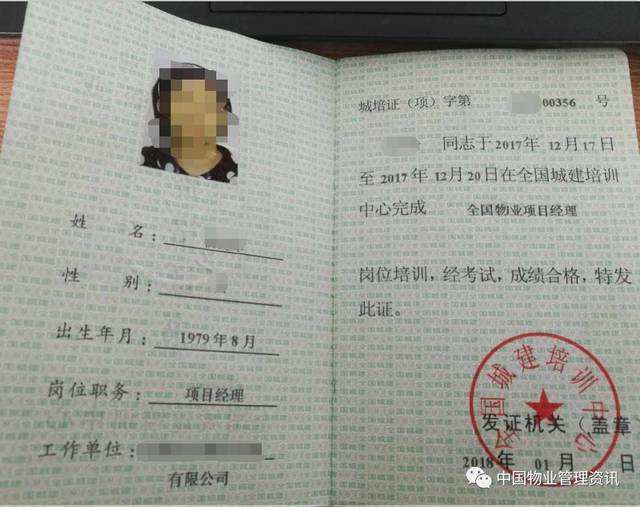 姓 名：
性 别：
出生年月：1979年8月
岗位职务：项目经理
工作单位：
有限公司
城培证（项）字第 00356 号
同志于2017年12月17日
至2017年12月20日在全国城建培训
中心完成 全国物业项目经理
岗位培训，经考试，成绩合格，特发
此证。
全国城建培训中心
发证机关（盖章
2018年 01月 日
中国物业管理资讯